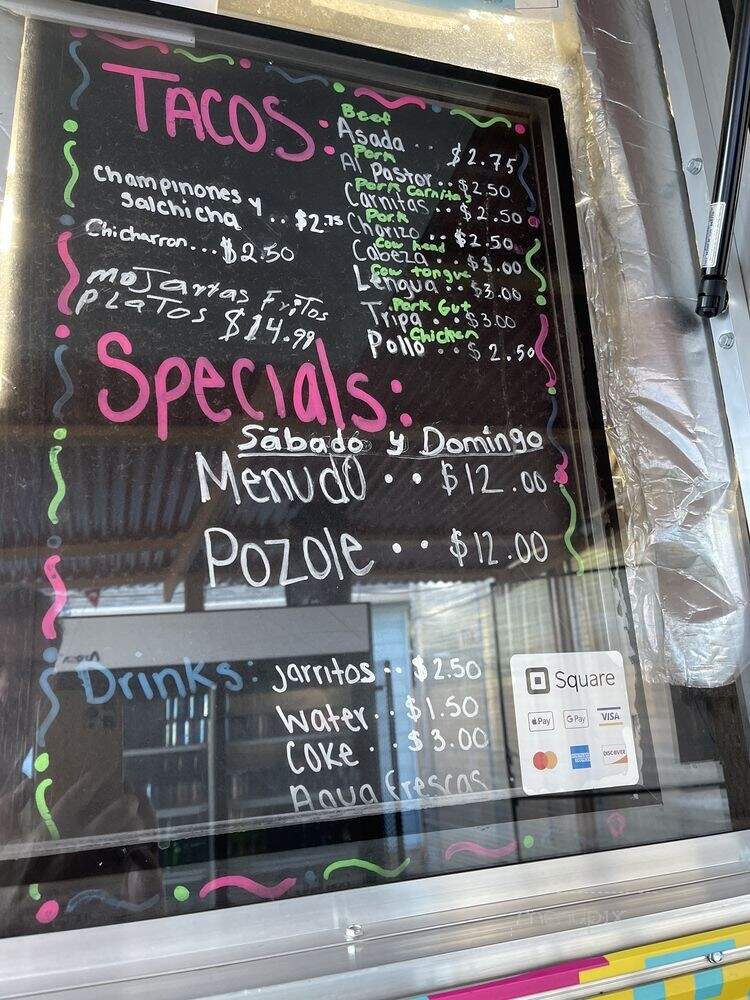 TACOS:
Beef
Asada .. $2.75
Pork
Al Pastor .. $2.50
Pork Carnitas
Carnitas .. $2.50
Pork
Chorizo .. $2.50
Cow head
Cabeza .. $3.00
Cow tongue
Lengua .. $3.00
Pork Gut
Tripa .. $3.00
Chicken
Pollo .. $2.50
Champinones y
Salchicha .. $2.75
Chicharron... $2.50
MoJarras FriTos
PLaTos $14.99
Specials:
Sábado y Domingo
Menudo .. $12.00
Pozole .. $12.00
Drinks:
Jarritos .. $2.50
Water .. $1.50
Coke .. $3.00
Agua frescas
Square
Pay
G Pay
VISA
DISCOVER
menupix